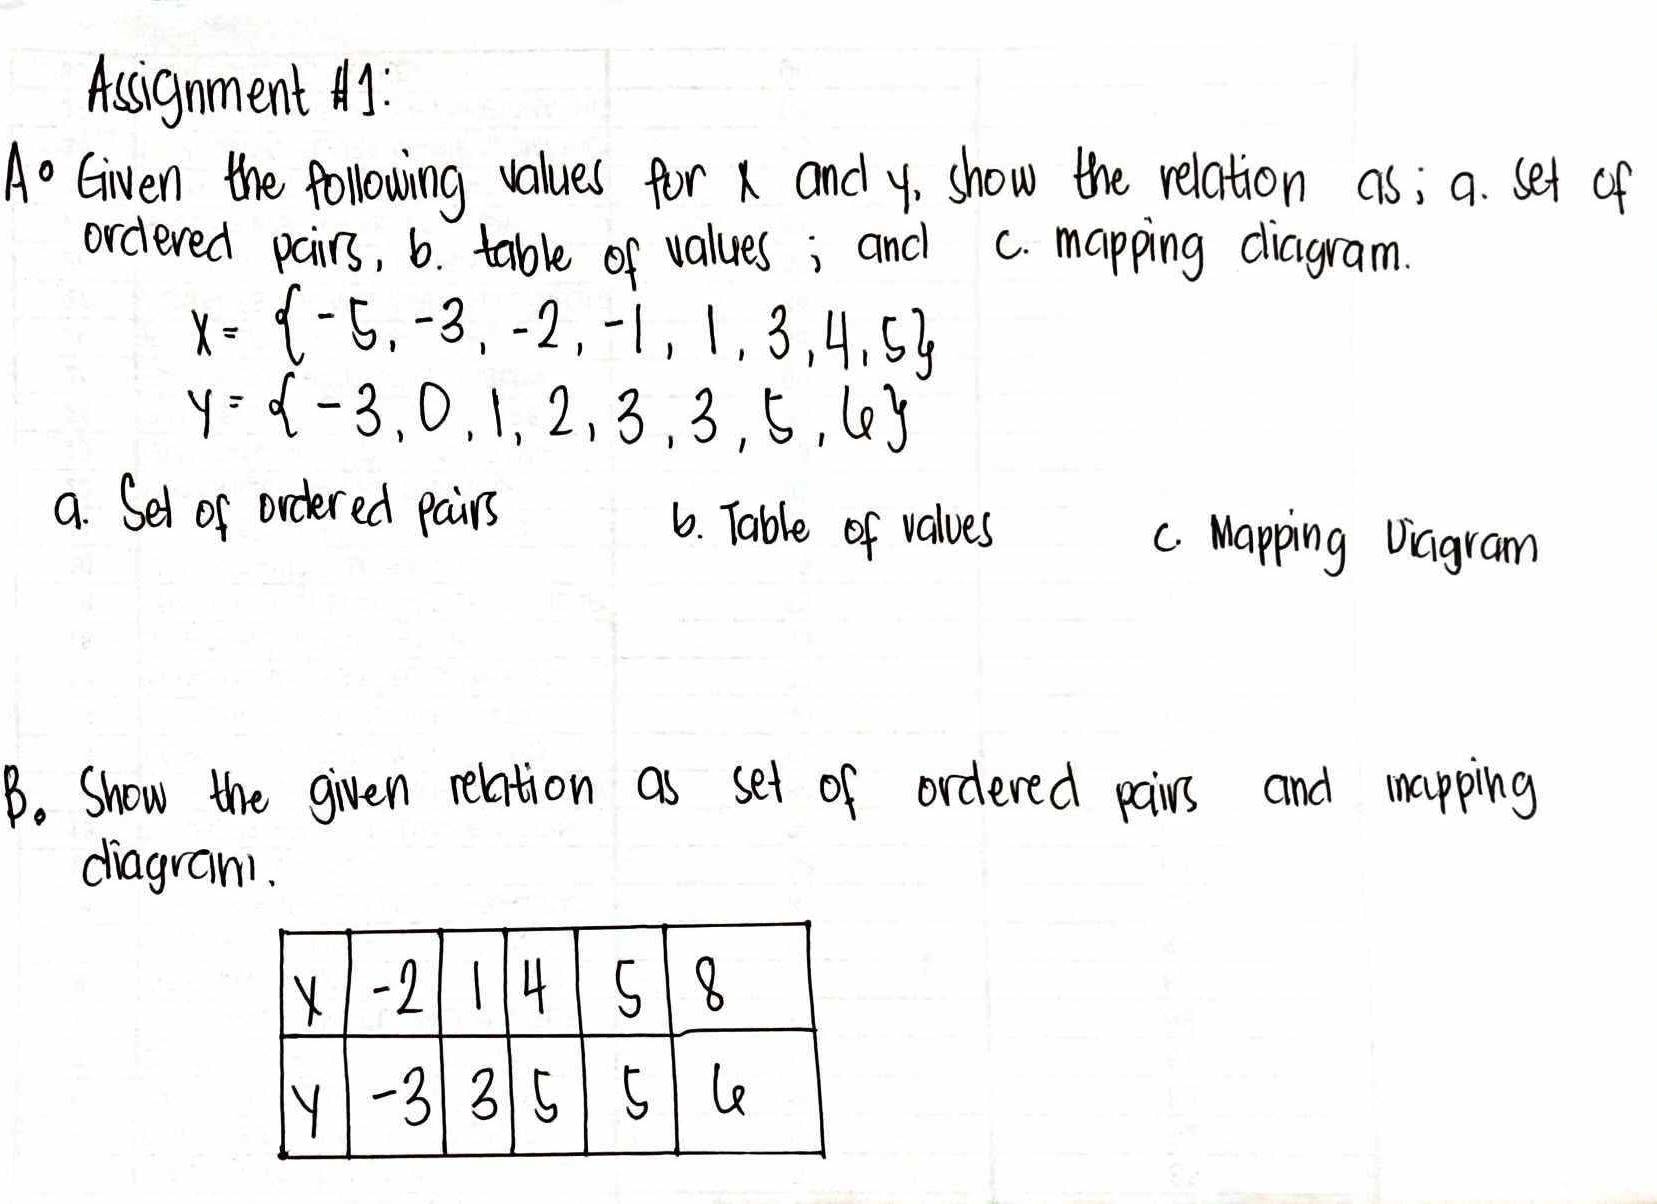 Assignment #1:
A. Given the following values for x and y, show the relation as; a. set of
ordered pairs, b. table of values ; and c. mapping diagram.
X= {-5, -3, -2, -1, 1, 3, 4, 5}
Y= {-3, 0, 1, 2, 3, 3, 5, 6}
a. Set of ordered pairs b. Table of values c. Mapping Diagram
B. Show the given relation as set of ordered pairs and mapping
diagram.
X -2 1 4 5 8
Y -3 3 5 5 6